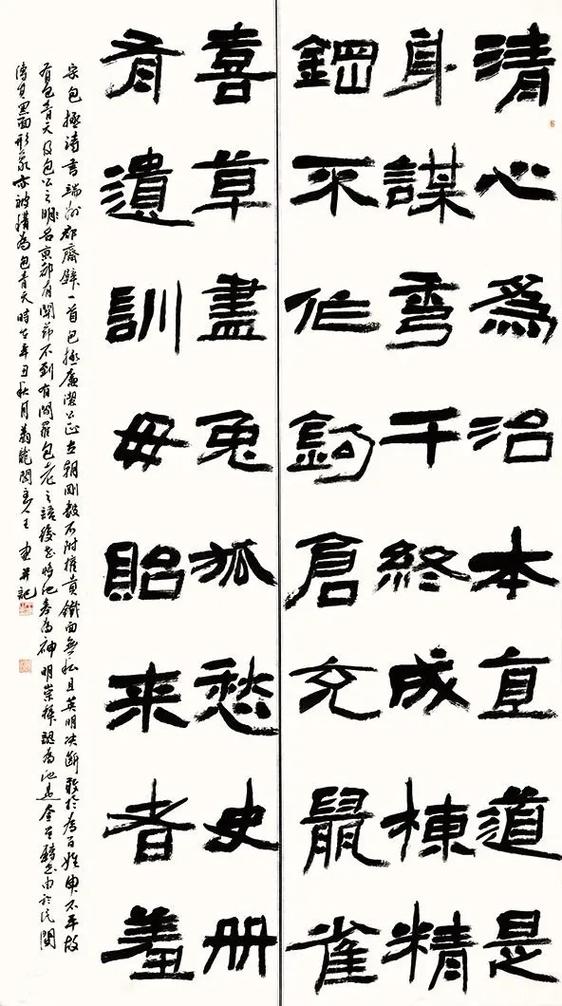 清心為治本直道是
身謀秀干終成棟精
鋼不作鉤倉充鼠雀
喜草盡兔狐愁史册
有遺訓毋貽来者羞
宋包拯詩書端州郡齋壁一首包拯廉潔公正立朝剛毅不附權貴鐵面無私且英明决斷敢於為百姓申不平故
有包青天及包公之名京都有關節不到有閻羅包老之語後世將他奉為神明崇拜認為他是奎星轉世由於民間
傳其黑面形象亦被稱為包青天時在辛丑秋月龍閣主人王并記